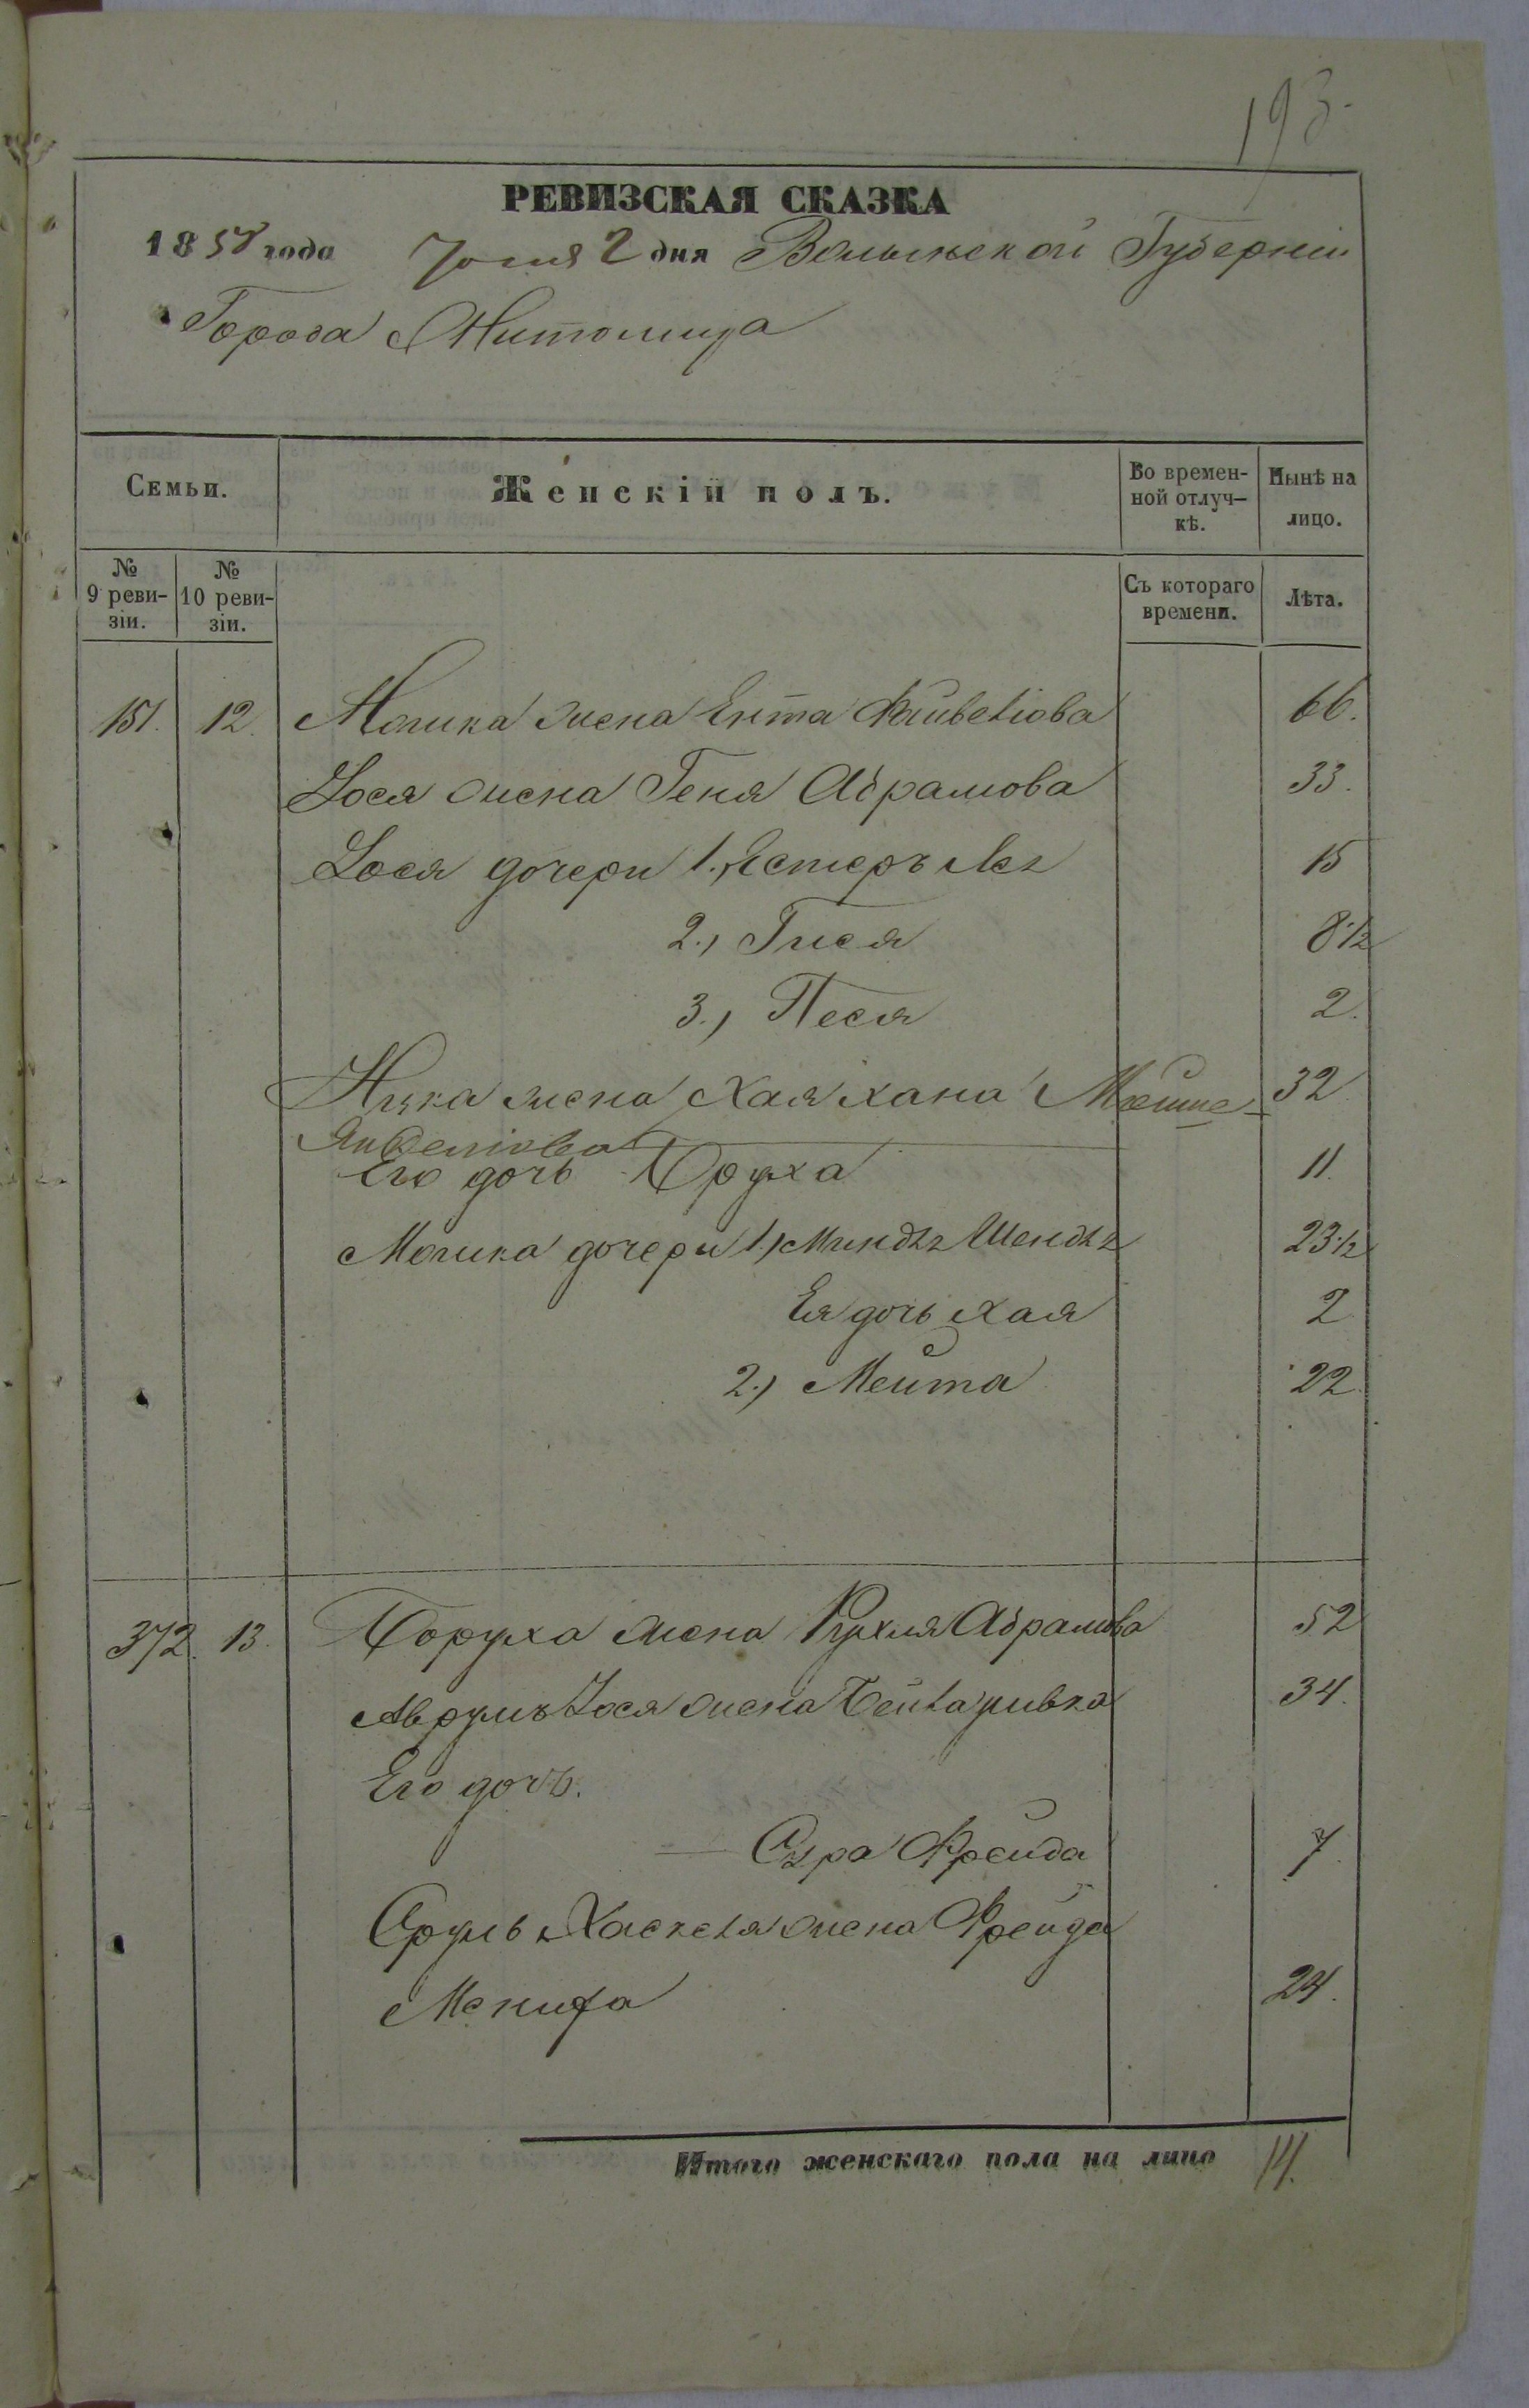 193.
РЕВИЗСКАЯ СКАЗКА
1858 года Іюня 2 дня Волынской Губерніи
Города Житомира
Семьи.
Женскій полъ.
Во времен-
ной отлуч-
кѣ.
Нынѣ на
лицо.
№
9 реви-
зіи.
№
10 реви-
зіи.
Съ котораго
времени.
Лѣта.
151. 12. Мошка жена Ента Файвеліова 66.
Іося жена Геня Абрамова 33.
Іося дочери 1., Естеръ 15
2., Гися 8½
3., Песя 2.
жена Хая Хана 32.
Янкеліова
Его дочь Бруха 11.
Мошка дочери 1.) Миндля Шендля 23½
Ея дочь Хая 2
2.) Мейта 22.
372. 13. Боруха жена Рухля Абрамова 52
Аврумъ Іося жена Бейла ривка 34.
Его дочь.
Сура Фрейда 7.
Сруль Хаскеля жена Фрейда
24.
Итого женскаго пола на лицо 14.